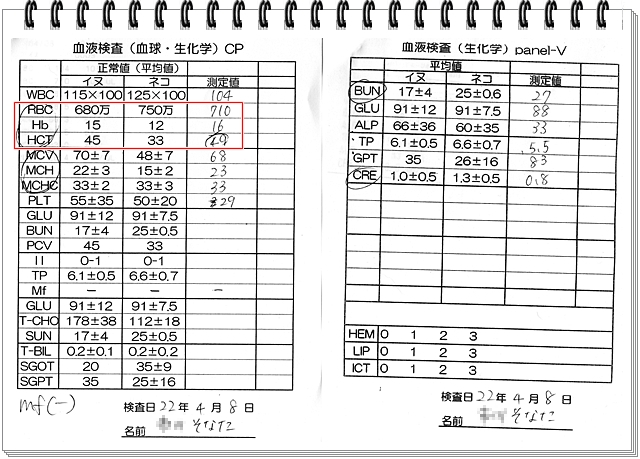 血液検査(血球・生化学) CP
正常値(平均値)
イヌ ネコ 測定値
WBC 115×100 125×100 104
RBC 680万 750万 710
Hb 15 12 16
HCT 45 33 49
MCV 70±7 48±7 68
MCH 22±3 15±2 23
MCHC 33±2 33±3 33
PLT 55±35 50±20 29
GLU 91±12 91±7.5
BUN 17±4 25±0.5
PCV 45 33
II 0-1 0-1
TP 6.1±0.5 6.6±0.7
Mf − − −
GLU 91±12 91±7.5
T-CHO 178±38 112±18
SUN 17±4 25±0.5
T-BIL 0.2±0.1 0.2±0.2
SGOT 20 35±9
SGPT 35 25±16
mf(-)
検査日 22年 4月 8日
名前 そなた
血液検査(生化学) panel-V
平均値
イヌ ネコ 測定値
BUN 17±4 25±0.6 27
GLU 91±12 91±7.5 88
ALP 66±36 60±35 33
TP 6.1±0.5 6.6±0.7 5.5
GPT 35 26±16 83
CRE 1.0±0.5 1.3±0.5 0.8
HEM 0 1 2 3
LIP 0 1 2 3
ICT 0 1 2 3
検査日 22年 4月 8日
名前 そなた